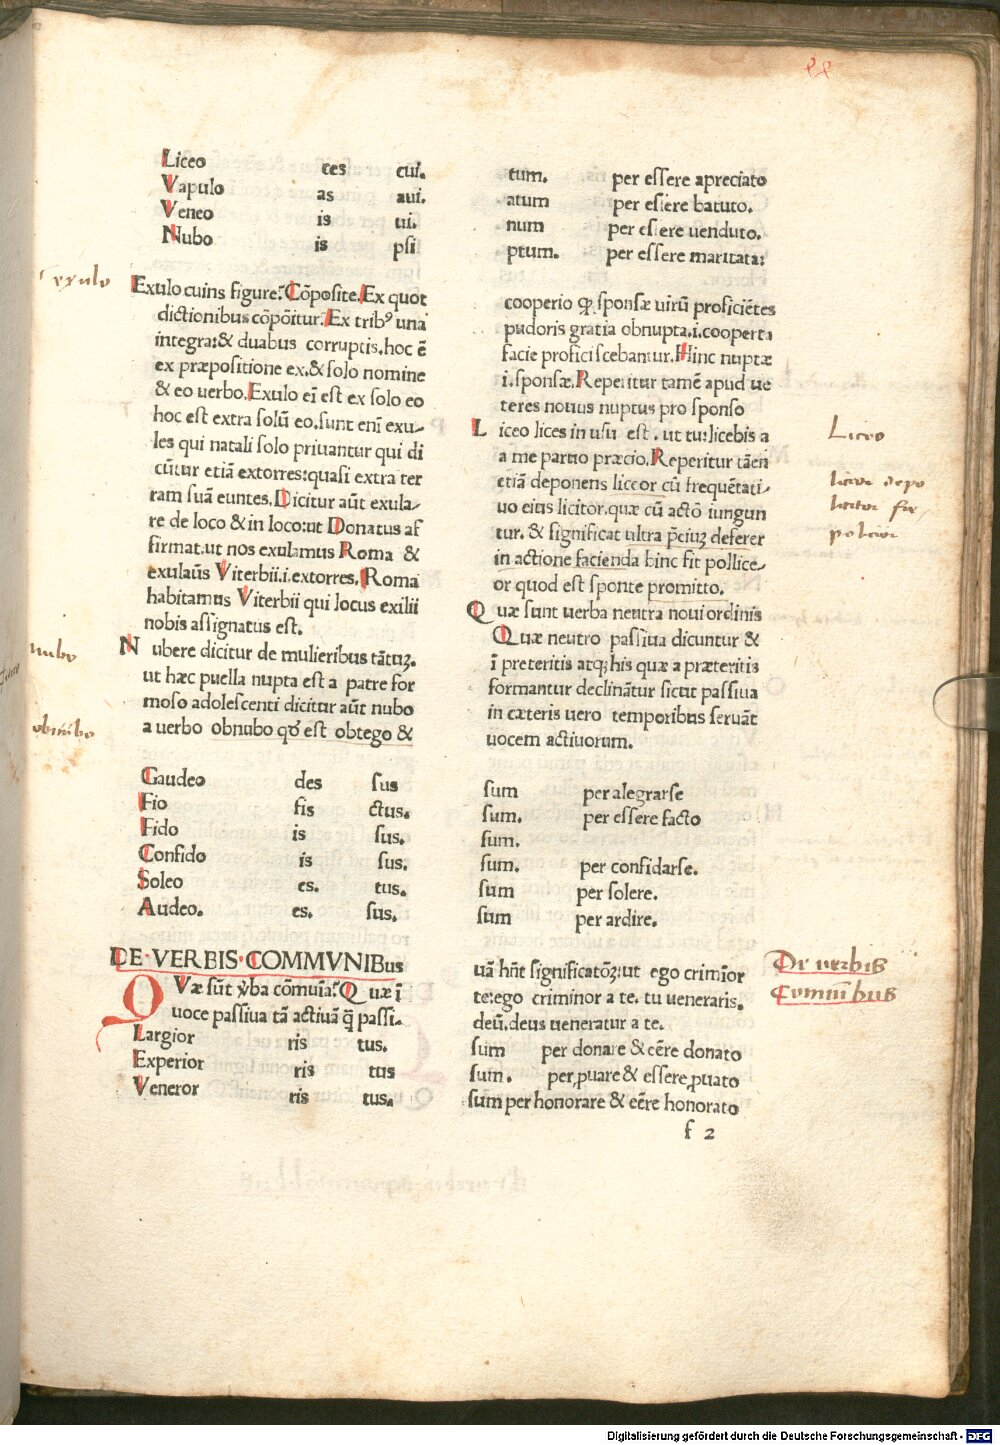 Liceo ces cui. tum. per essere apreciato
Vapulo as aui. atum per essere batuto.
Veneo is ui. num per essere uenduto.
Nubo is psi ptum. per essere maritata:
exulo
Exulo cuius figuræ? Cōposite. Ex quot
dictionibus cōpōitur? Ex tribꝰ una
integra: & duabus corruptis. hoc ē
ex præpositione ex. & solo nomine
& eo uerbo. Exulo eī est ex solo eo
hoc est extra solū eo. sunt enī exu-
les qui natali solo priuantur qui di
cūtur etiā extorres: quasi extra ter
ram suā euntes. Dicitur aūt exula-
re de loco & in loco: ut Donatus af
firmat. ut nos exulamus Roma &
exulaūs Viterbii. i. extorres. Roma
habitamus Viterbii qui locus exilii
nobis assignatus est.
nubo
Nubere dicitur de mulieribus tātuꝫ.
ut hæc puella nupta est a patre for
moso adolescenti dicitur aūt nubo
obnubo
a uerbo obnubo qđ est obtego &
cooperio ꝙ sponsæ uirū proficiētes
pudoris gratia obnupta. i. cooperta
facie proficiscebantur. Hinc nuptæ
i. sponsæ. Reperitur tamē apud ue
teres nouus nuptus pro sponso
Liceo
Liceo lices in usu est. ut tu: licebis a
a me paruo præcio. Reperitur tāen
etiā deponens liceor cū frequētati-
uo eius licitor. quæ cū actō iungun
tur. & significat ultra p̄ciuꝫ deferer
in actione facienda hinc fit pollice-
or quod est sponte promitto.
liceor depo
licitor fre
polliceor
Quæ sunt uerba neutra noui ordinis
Quæ neutro passiua dicuntur &
ī preteritis atqꝫ his quæ a præteritis
formantur declināntur sicut passiua
in cæteris uero temporibus seruāt
uocem actiuorum.
Gaudeo des sus sum per alegrarse
Fio fis ctus. sum. per essere facto
Fido is sus. sum.
Confido is sus. sum. per confidarse.
Soleo es. tus. sum per solere.
Audeo. es. sus. sum per ardire.
DE VERBIS COMMVNIBus
Quæ sūt v̓ba cōmuīa? Quæ ī
uoce passiua tā actiuā q̄ passi-
uā hn̄t significatōꝫ: ut ego crimīor
te: ego criminor a te. tu ueneraris.
deū. deus ueneratur a te.
De uerbis
Commūibus
Largior ris tus. sum per donare & eēre donato
Experior ris tus sum. per ꝓuare & essere ꝓuato
Veneror ris tus. sum per honorare & eēre honorato
f 2
Digitalisierung gefördert durch die Deutsche Forschungsgemeinschaft - DFG